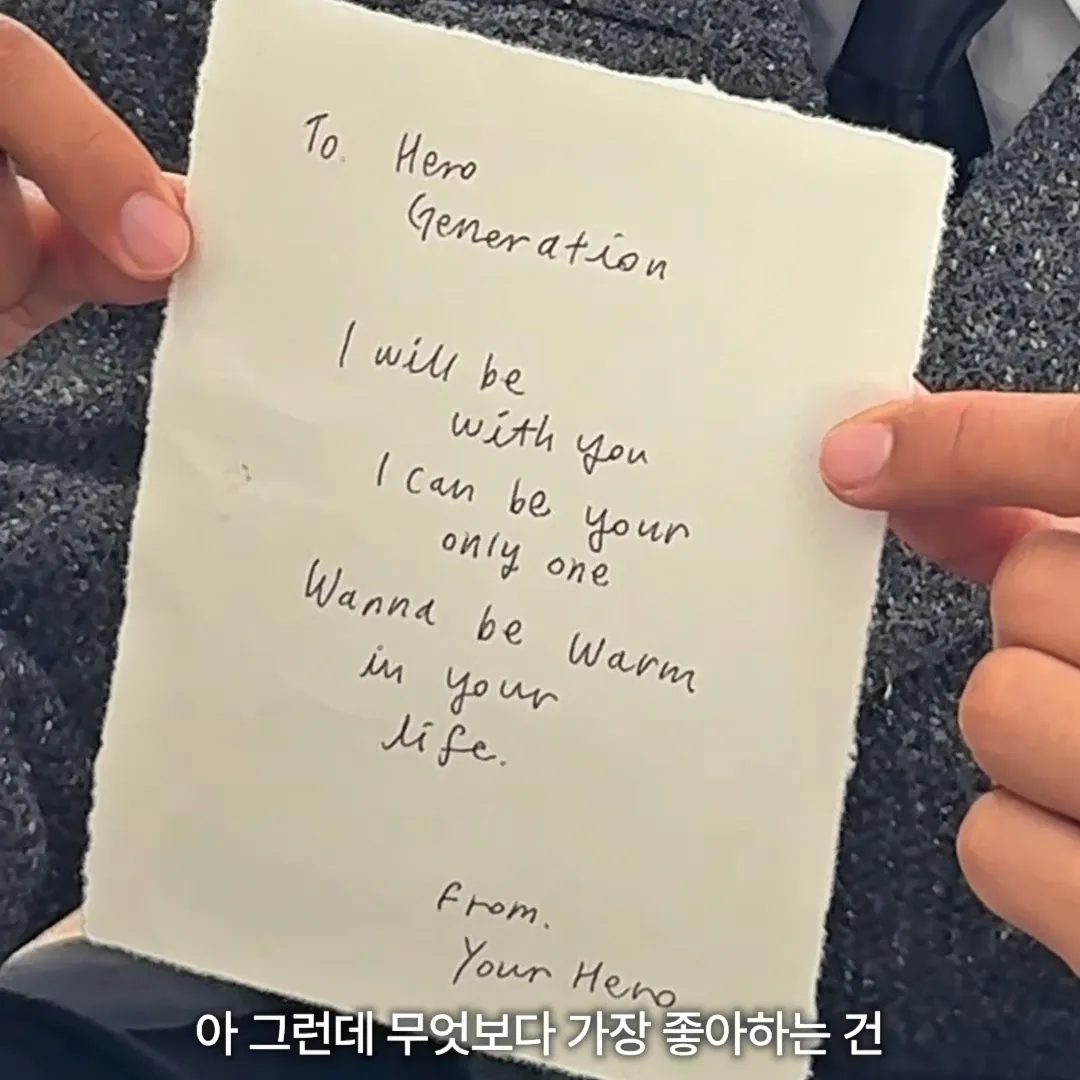 To. Hero
Generation
I will be
with you
I can be your
only one
Wanna be Warm
in your
life.
From.
Your Hero
아 그런데 무엇보다 가장 좋아하는 건